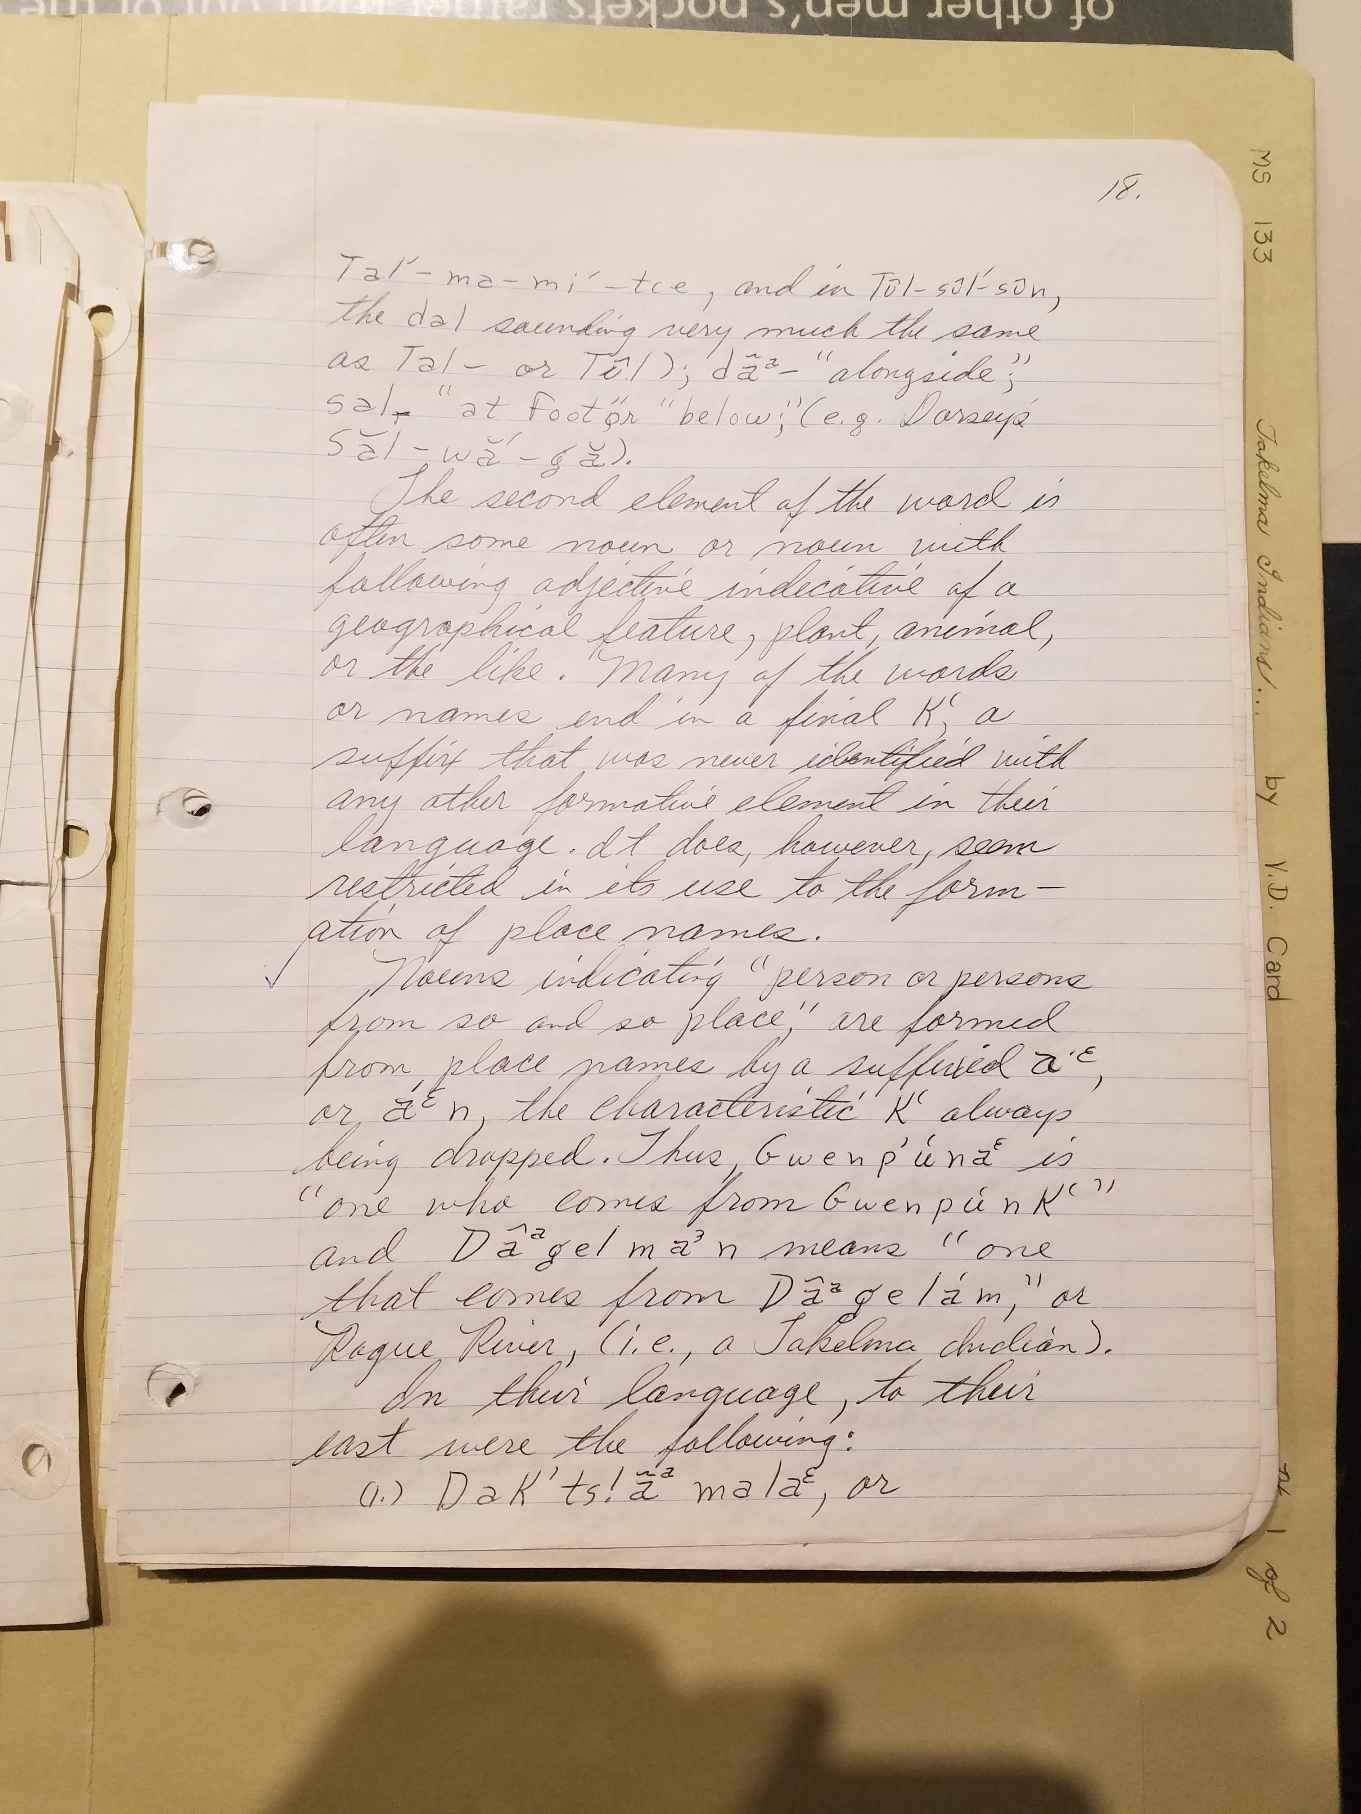 of other men's pockets rather than our or the
18.
Tal´-ma-mi´-tce, and in Tūl-sūl´-sūn,
the dal sounding very much the same
as Tal- or Tûl); dãª- "alongside";
sal- "at foot" or "below"; (e.g. Dorsey's
Săl-wă´-ɠă).
The second element of the word is
often some noun or noun with
following adjective indicative of a
geographical feature, plant, animal,
or the like. Many of the words
or names end in a final K‘, a
suffix that was never identified with
any other formative element in their
language. It does, however, seem
restricted in its use to the form-
ation of place names.
✓ Nouns indicating "person or persons
from so and so place," are formed
from place names by a suffixed ā´ᵋ,
or āᵋn, the characteristic K‘ always
being dropped. Thus, Gwenp'únāᵋ is
"one who comes from GwenpúnK‘"
and Dâªgelmaᵌn means "one
that comes from Dâªgelám," or
Rogue River, (i.e., a Takelma Indian).
In their language, to their
east were the following:
(1.) DaK't s!ãª malaᵋ, or
MS 133 Takelma Indians... by V.D. Card 1 of 2